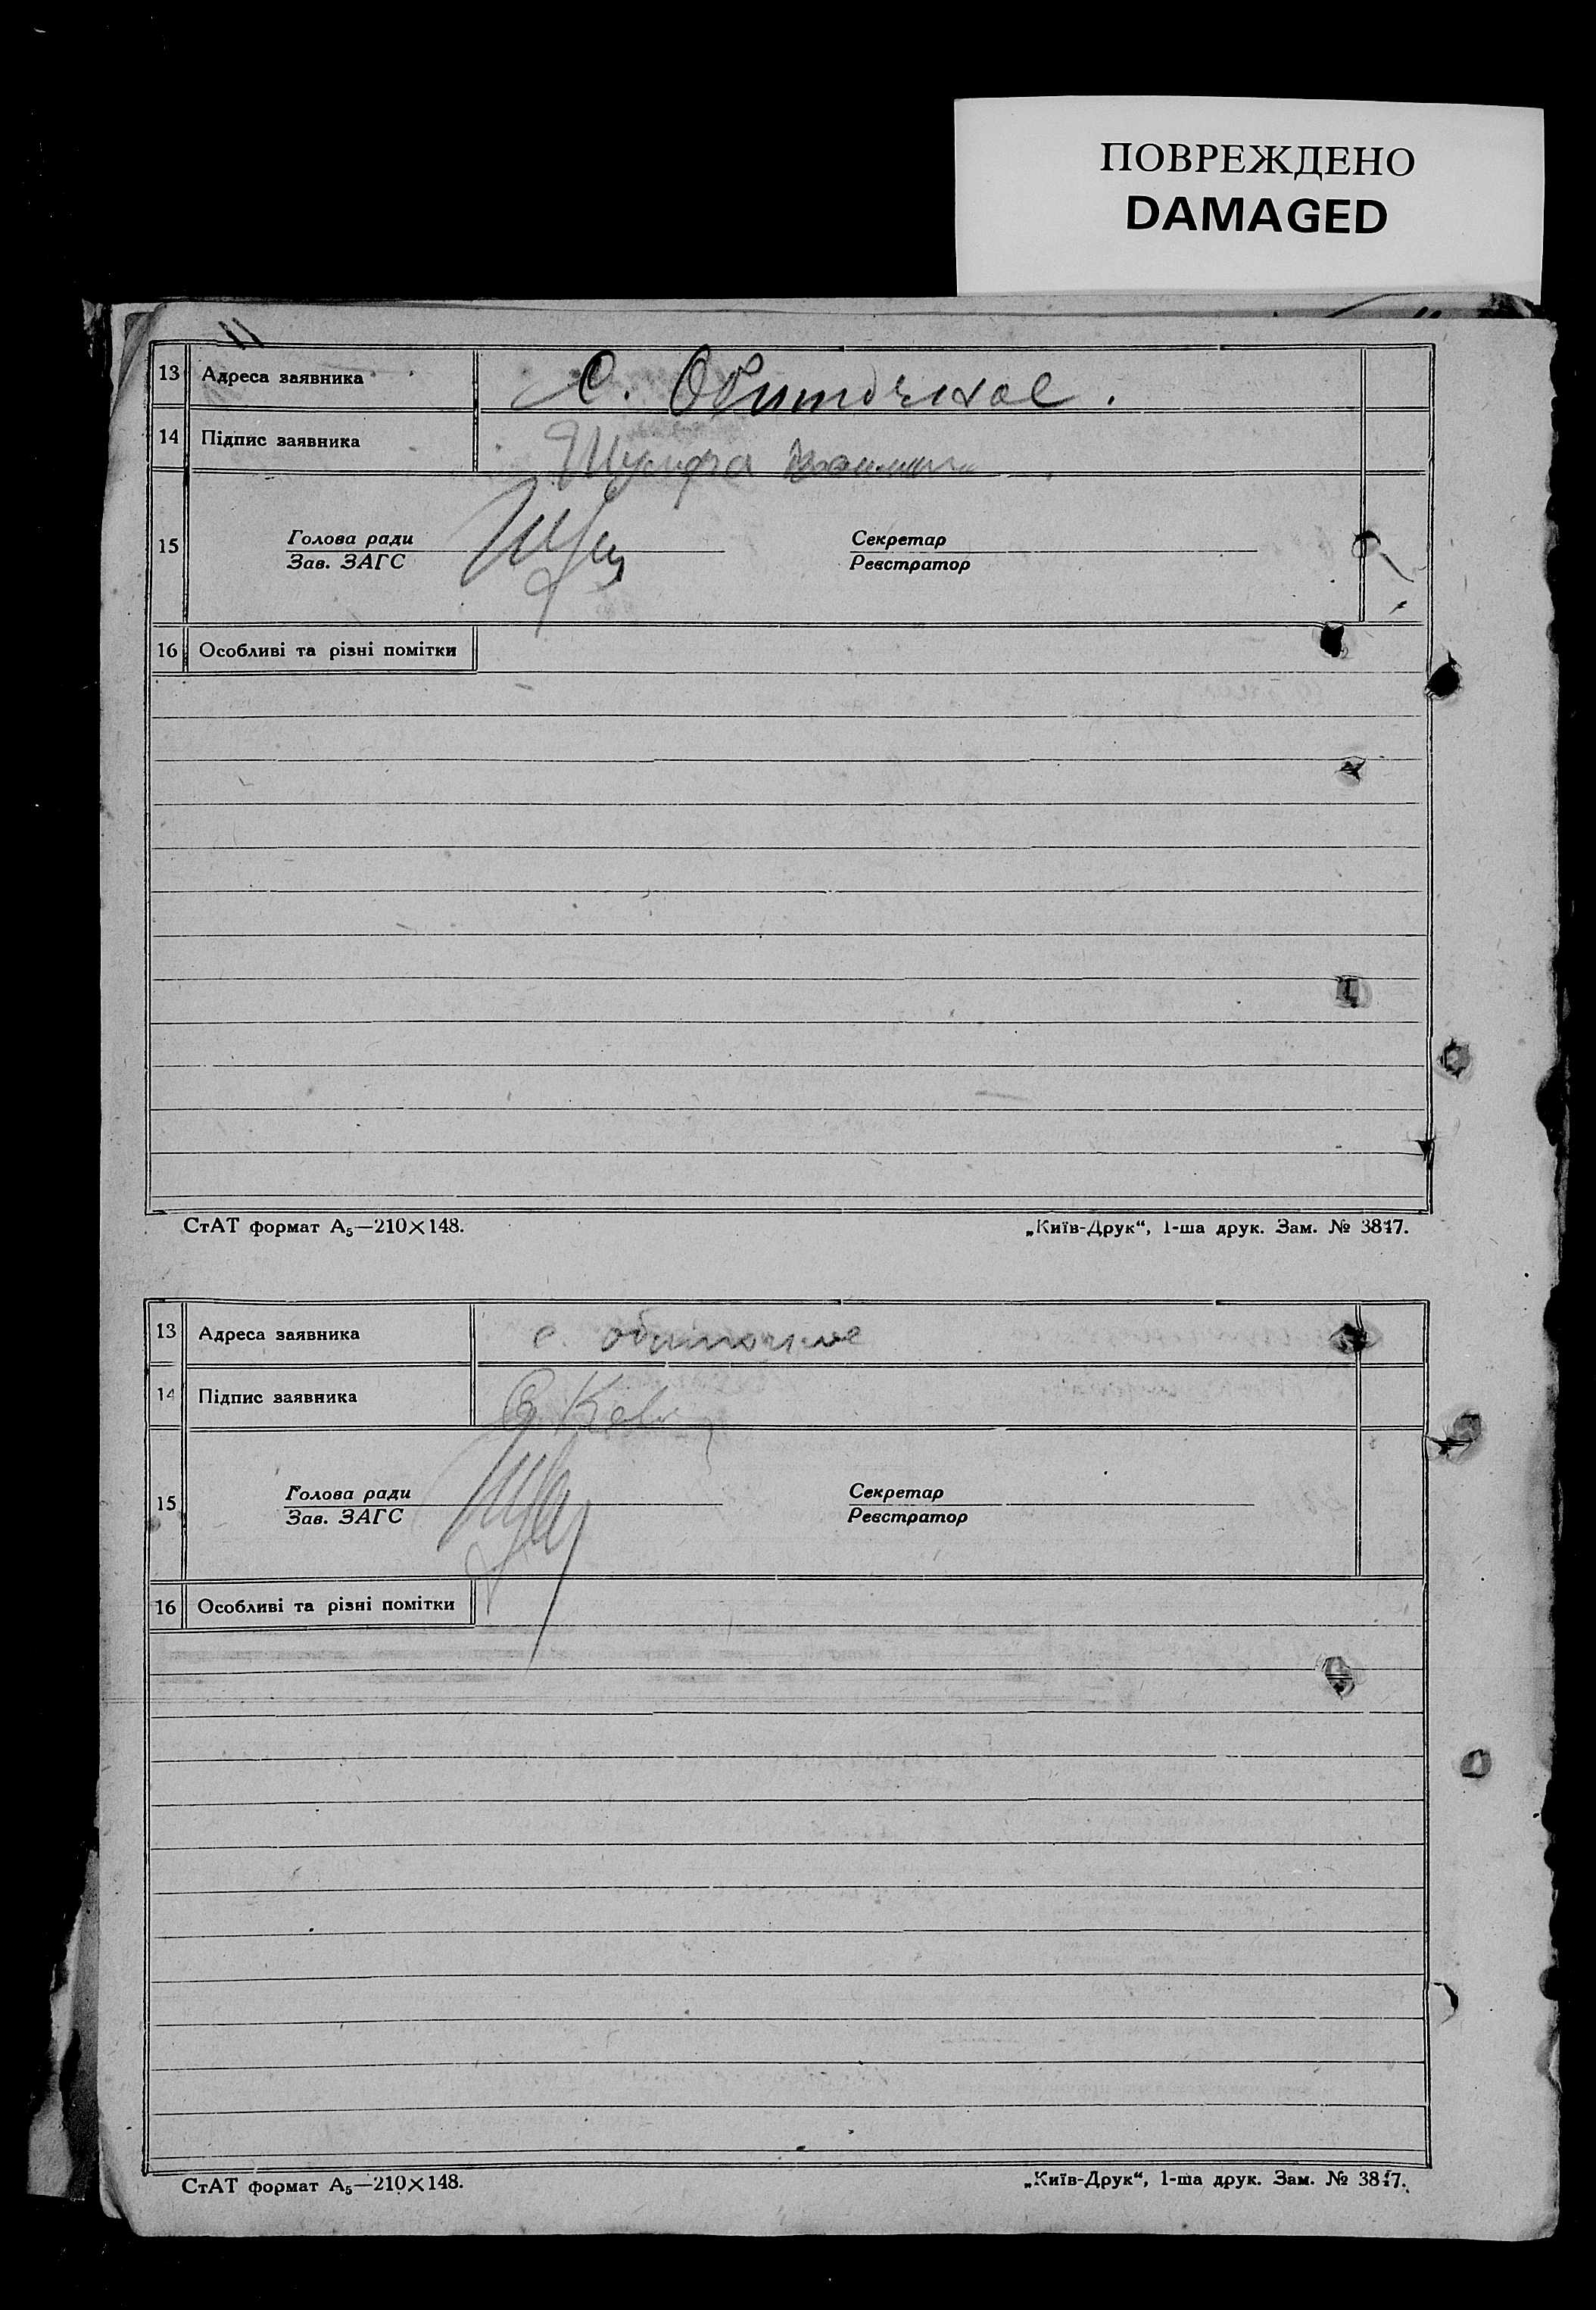 ПОВРЕЖДЕНО
DAMAGED
13 Адреса заявника С. Обиточное.
14 Підпис заявника
15 Голова ради Секретар
Зав. ЗАГС Реєстратор
16 Особливі та різні помітки
СтАТ формат А₅—210×148. „Київ-Друк“, 1-ша друк. Зам. № 3847.
13 Адреса заявника с. обиточне
14 Підпис заявника
15 Голова ради Секретар
Зав. ЗАГС Реєстратор
16 Особливі та різні помітки
СтАТ формат А₅—210×148. „Київ-Друк“, 1-ша друк. Зам. № 3847.